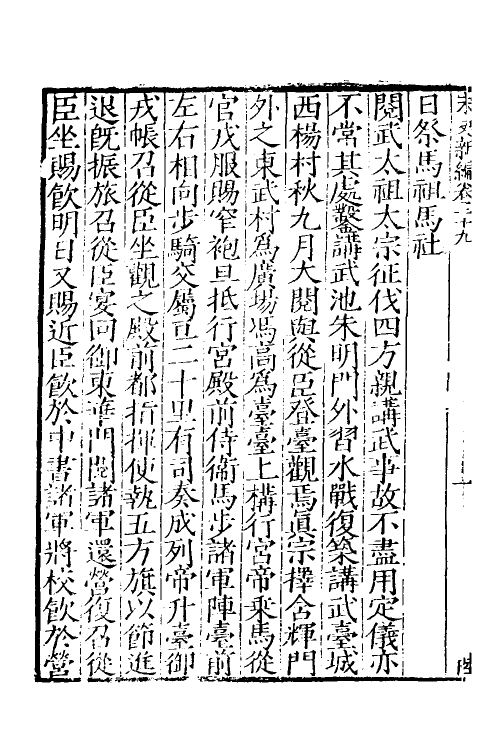 宋史新編卷三十九
日祭馬祖馬社
閱武太祖太宗征伐四方親講武事故不盡用定儀亦
不常其處鑿講武池朱明門外習水戰復築講武臺城
西楊村秋九月大閱與從臣登臺觀焉真宗擇含輝門
外之東武村為廣場馮高為臺臺上構行宮帝乘馬從
官戎服賜窄袍旦抵行宮殿前侍衞馬步諸軍陣臺前
左右相向步騎交屬亘二十里有司奏成列帝升臺御
戎帳召從臣坐觀之殿前都指揮使執五方旗以節進
退旣振旅召從臣宴回御東華門閱諸軍還營復召從
臣坐賜飲明日又賜近臣飲於中書諸軍將校飲於營